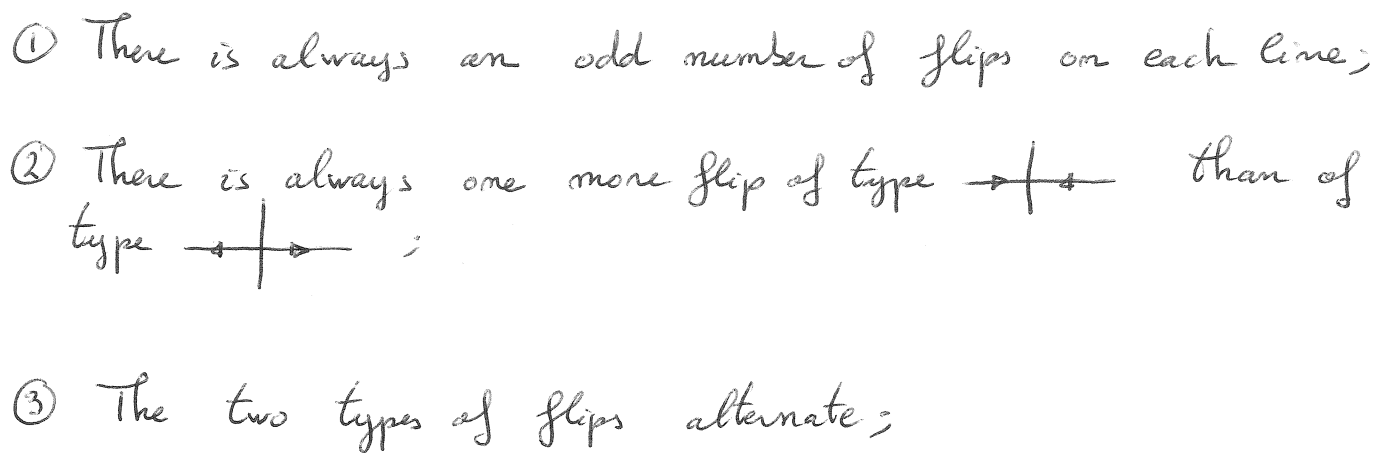 ① There is always an odd number of flips on each line;
② There is always one more flip of type than of
type ;
③ The two types of flips alternate;